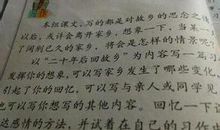 本组课文,写的都是对故乡的思念之
以后,或许会离开家乡,想象一下,当某一
了阔别已久的家乡,将会是怎样的情景呢
以“二十年后回故乡”为内容写一篇习
发挥你的想象,可以写家乡发生了哪些变化
引起了你的回忆,可以写与亲人或同学见
也可以写你想写的其他内容。回忆一下
达感情的方法,并试着在自己的